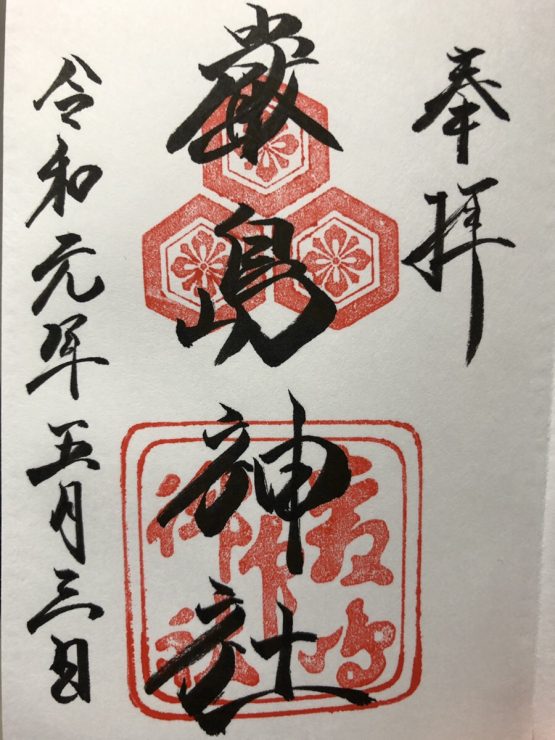 奉拝
厳島神社
令和元年五月三日